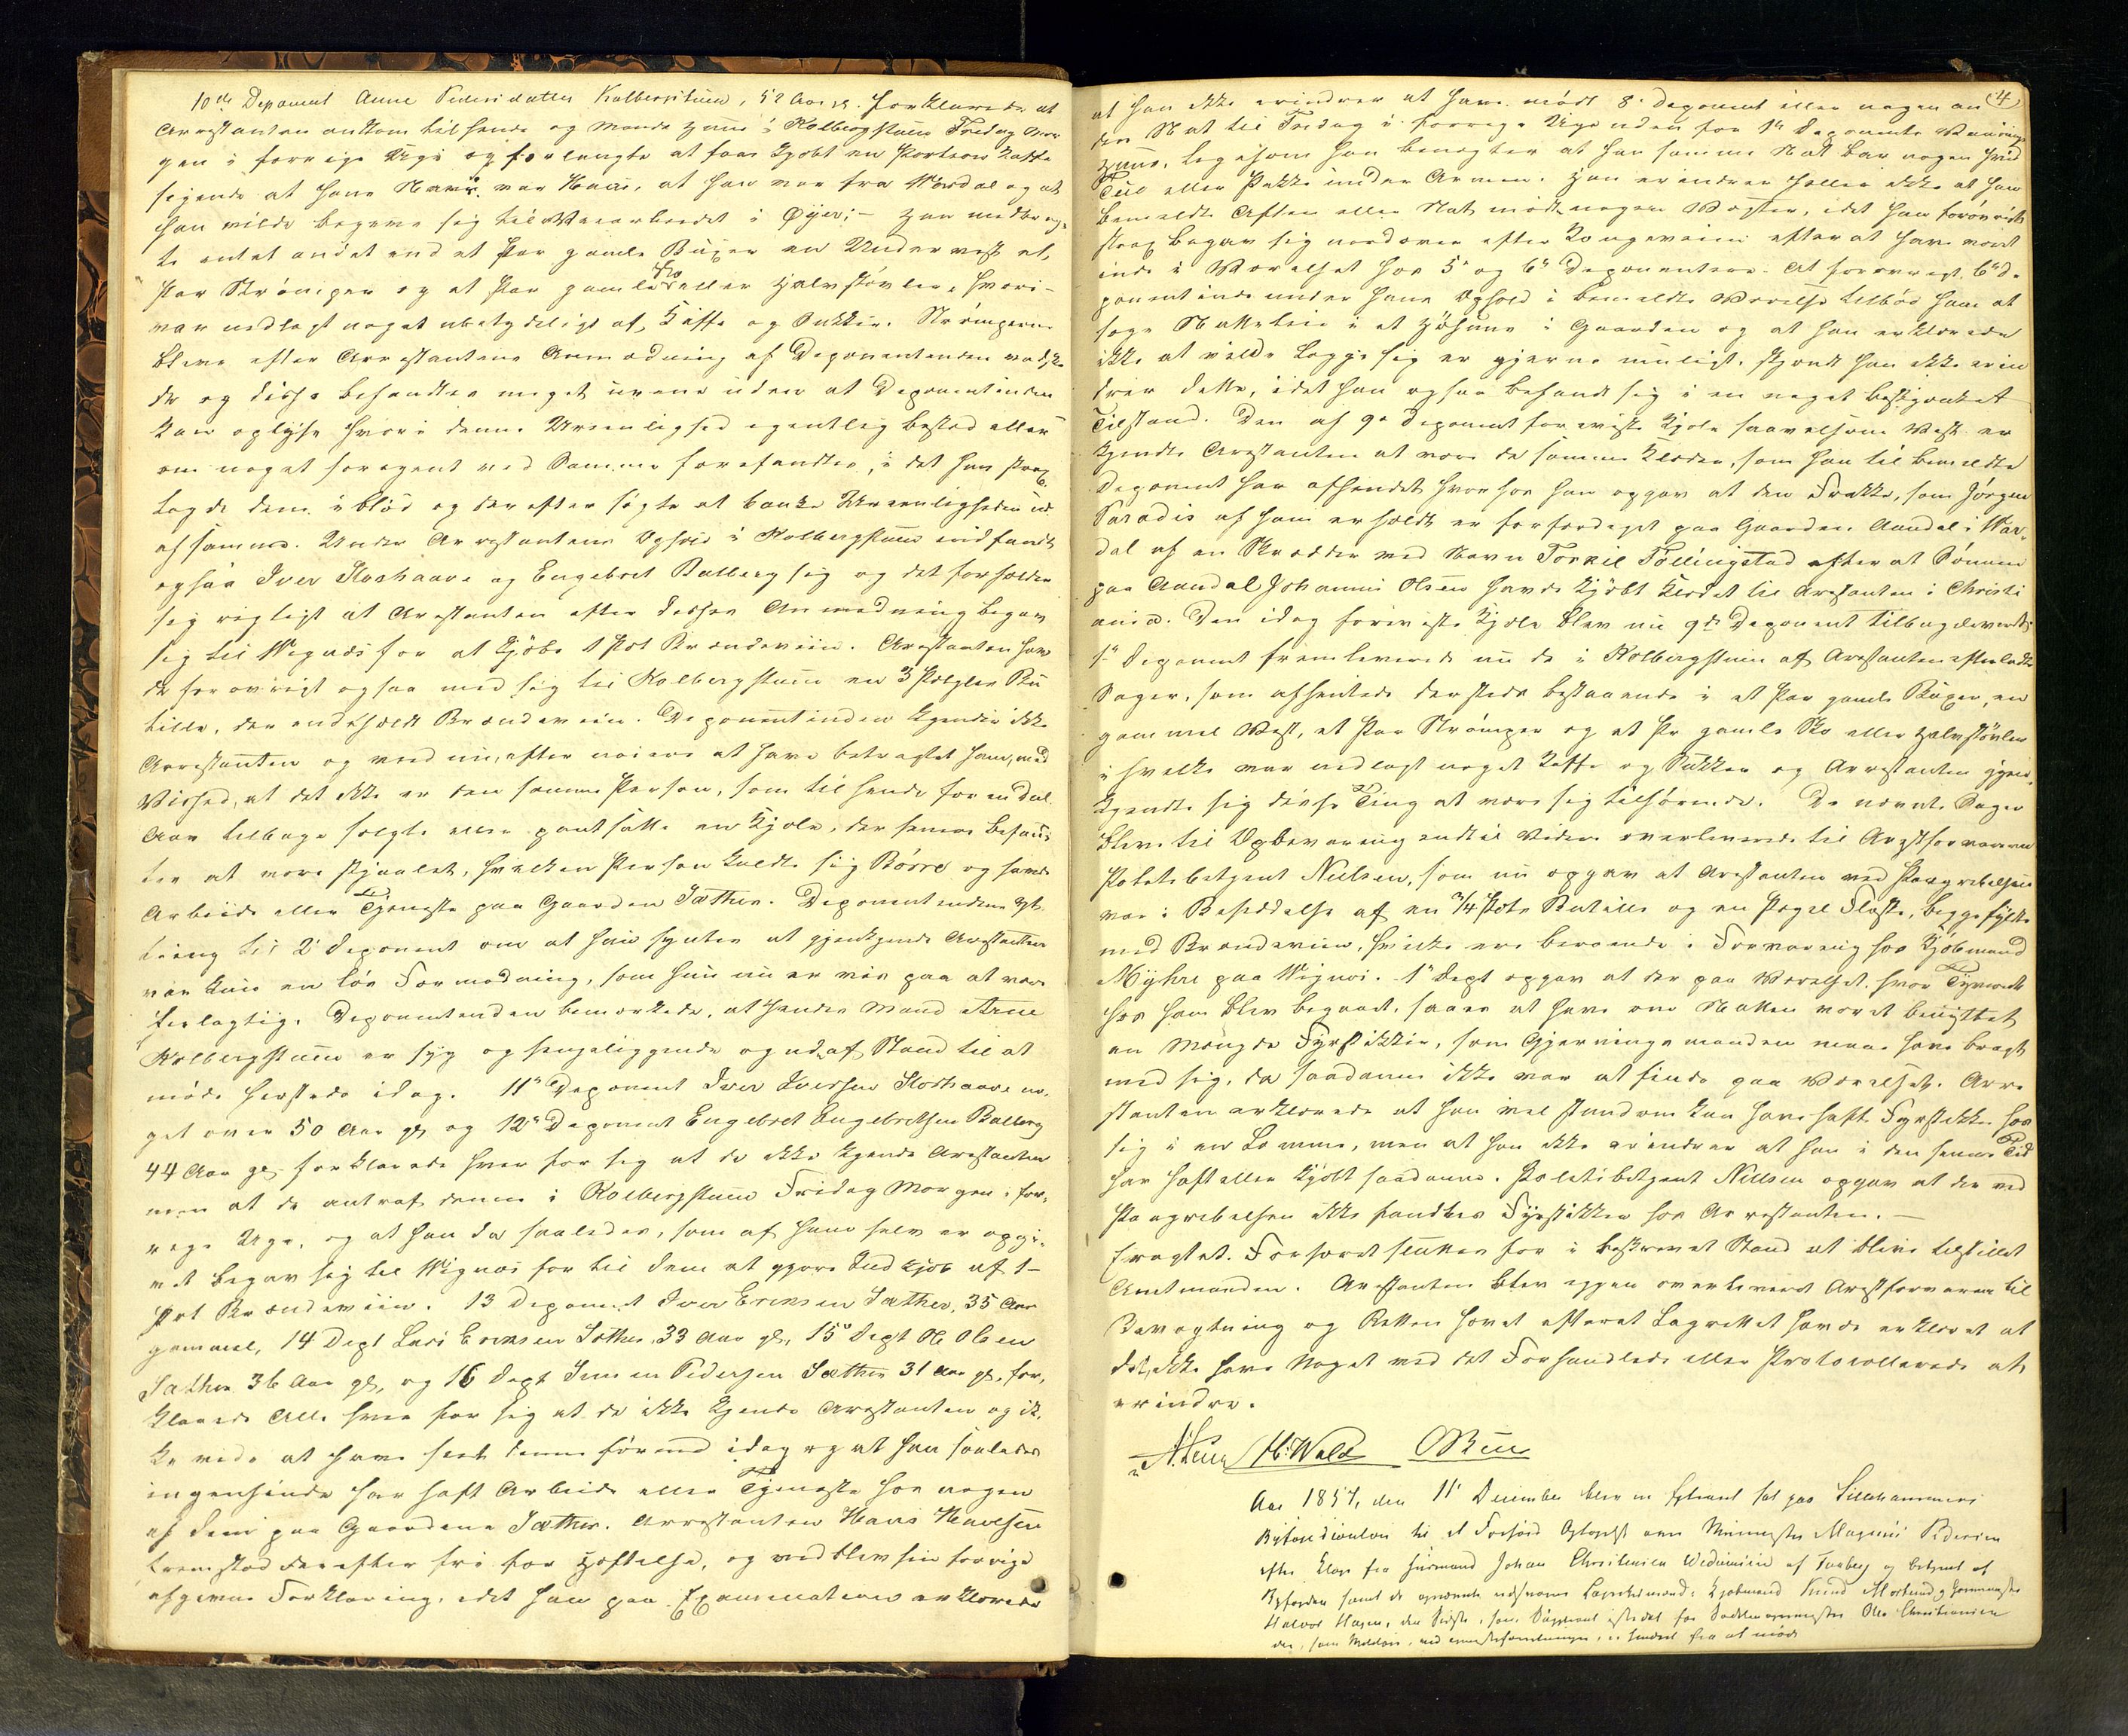 10de Deponent Anne Pedersdatter Kolbergstuen, 52 Aar gl. forklarede at
Arrestanten ankom til hende og Mands Huus i Kolbergstuen Fredag Mor
gen i forrige Uge og forlangte at faae kjøbt en Portion Kaffe
sigende at hans Navn var Hans, at han var fra Værdal og at
han vilde begive sig til Veiarbeidet i Øyer; – Han medbrag-
te intet andet end et Par gamle Buxer en Undervest et,
Par Strömper og et Par gamle Sko eller Halvstövler, hvori-
var nedlagt noget ubetydeligt af Kaffe og Sukker. Strömperne
bleve efter Arrestantens Anmodning af Deponentinden vadske
de og disse befandtes meget urene uden at Deponentinden
kan oplyse hvori denne Ureenlighed egentlig bestod eller
om noget foregent ved Samme forefandtes, i det hun strax
lagde dem i blöd og derefter søgte at banke Ureenligheden ud
af samme. Under Arrestantens Ophold i Kolbergstuen indfandt
ogsaa Iver Kloshaave og Engebret Balberg sig og det forholder
sig rigtigt at Arestanten efter disses Anmodning begav
sig til Vignæs for at kjöbe 1 Pot Brændeviin. Arestanten hav
de forøvrigt ogsaa med sig til Kolbergstuen en 3 Pægles Bu
teille, der indeholdt Brændeviin. Deponentinden kjender ikke
Arrestanten og veed nu, efter nøiere at have betragtet ham, med
Vished, at det ikke er den samme Person, som til hende for en Deel
Aar tilbage solgte eller pantsatte en Kjole, der senere befand-
tes at være stjaalet, hvilken Person kaldte sig Börre og havde
Arbeide eller Tjeneste paa Gaarden Sæther. Deponentindens Yt-
tring til 2' Deponent om at hun syntes at gjenkjende Arestanten
var kun en lös Formodning, som hun nu er vis paa at være
feilagtig. Deponentinden bemærkede, at hendes Mand Arne
Kolbergstuen er syg og sengeliggende og ud af Stand til at
møde herstede idag. 11te Deponent Iver Iversen Kloshaave no-
get over 50 Aar gl. og 12te Deponent Engebret Engebretsen Balberg
44 Aar gl. forklarede hver for sig at de ikke kjende Arestanten
men at de antraf denne i Kolbergstuen Fredag Morgen i for-
rige Uge, og at han da saaledes, som af ham selv er opgi-
vet begav sig til Vignæs for til dem at gjøre Indkjøb af 1–
Pot Brændeviin. 13 Deponent Iver Eriksen Sæther, 35 Aar
gammel, 14 Dept Lars Eriksen Sæther, 33 Aar gl., 15de Dept Ole Olsen
Sæther 36 Aar gl., og 16 Dept Simen Pedersen Sæther 31 Aar gl., for-
klarede Alle hver for sig at de ikke kjende Arestanten og ik-
ke vide at have seet denne förend idag og at han saaledes
ingensinde har haft Arbeide eller Tjeneste hos nogen
af dem paa Gaardene Sæther. Arrestanten Hans Havesen
fremstod derefter fri for Hæftelse, og vedblev sin forrige
afgivne Forklaring, idet han paa Examination erklærede
4
at han ikke erindrer at have mødt 8' Deponent eller nogen an
den Nat til Fredag i forrige Uge uden for 1te Deponents Vaanings
huus, ligesom han benegter at han samme Nat bar nogen hvid
Tiil eller Pakke under Armen. Han erindrer heller ikke at han
bemeldte Aften eller Nat mødte nogen Vægter, idet han forövrigt
strax begav sig nordover efter Kongeveien efter at have været
inde i Værelset hos 5te og 6te Deponentere. At forøvrigt 6te De
ponentinde under hans Ophold i bemeldte Værelse tilbød ham at
søge Natteleie i et Höhuus i Gaarden og at han erklærede
ikke at ville lægge sig er gjerne muligt, skjønt han ikke erin
drer dette, idet han ogsaa befandt sig i en noget beskjænket
Tilstand. Den af 9de Deponent foreviste Kjole saavelsom Vest er
kjendte Arestanten at være de samme Klæder, som han til bemeldte
Deponent har afhændet hvorhos han opgav at den Frakke, som Jørgen
Paradis af ham erholdt er forfærdiget paa Gaarden Aandal i Vær-
dal af en Skrædder ved Navn Torkil Föllingstad efter at Sønnen
paa Aandal Johannes Olsen havde kjöbt Klædet til Arestanten i Christi
ania. Den idag foreviste Kjole blev nu 9de Deponent tilbageleveret.
1te Deponent fremleverede nu de i Kolbergstuen af Arestanten efterladte
Sager, som afhentede derstede bestaaende i et Par gamle Buxer, en
gammel Vest, et Par Strömper og et Pr gamle Sko eller Halvstövler
i hvilke var nedlagt noget Kaffe og Sukker og Arrestanten gjen-
kjendte sig disse Ting at være sig tilhörende. De nævnte Sager
bleve til Opbevaring indtil Videre overleverede til Arestforvareren
Politibetjent Nielsen, som nu opgav at Arestanten ved Paagribelsen
var i Besiddelse af en 3/4 Pots Buteille og en Pægel Flaske, begge fyldte
med Brændeviin, hvilke ere beroende i Forvaring hos Kjöbmand
Myhre paa Vignæs. 1te Dept opgav at der paa Værelset, hvor Tyveriet
hos ham blev begaaet, saaes at have om Natten været benyttet
en Mængde Fyrstikker, som Gjerningsmanden maa have bragt
med sig, da saadanne ikke var at finde paa Værelset. Arre
stanten erklærede at han vel stundom kan have haft Fyrstikker hos
sig i en Lomme, men at han ikke erindrer at han i den senere Tid
har haft eller kjöbt saadanne. Politibetjent Nielsen opgav at der ved
Paagribelsen ikke fandtes Fyrstikker hos Arrestanten. –
Fragtet. Forhøret sluttes for i beskrevet Stand at blive tilstillet
Amtmanden. Arestanten blev igjen overleveret Arestforvareren til
Bevogtning og Retten hævet efterat Lagrettet havde erklæret at
det ikke have Noget ved det Forhandlede eller Protocollerede at
erindre.
H: Wold
Aar 1857, den 11' December blev en Extraret sat paa Lillehammers
Byfoedcontoir til et Forhörs Optagelse over Murmester Magnus Pedersen
efter Klage fra Huusmand Johan Christensen af Faaberg og betjent af
Byfogden samt de opnævnte edsvorne Lagrettesmænd: Kjøbmand Knud Morlund og
Halvor Hagen, den Sidste, som Suppleant istedet for Sadelmagermester Ole Christiansen
der, som Meldes, ved er hindret fra at møde